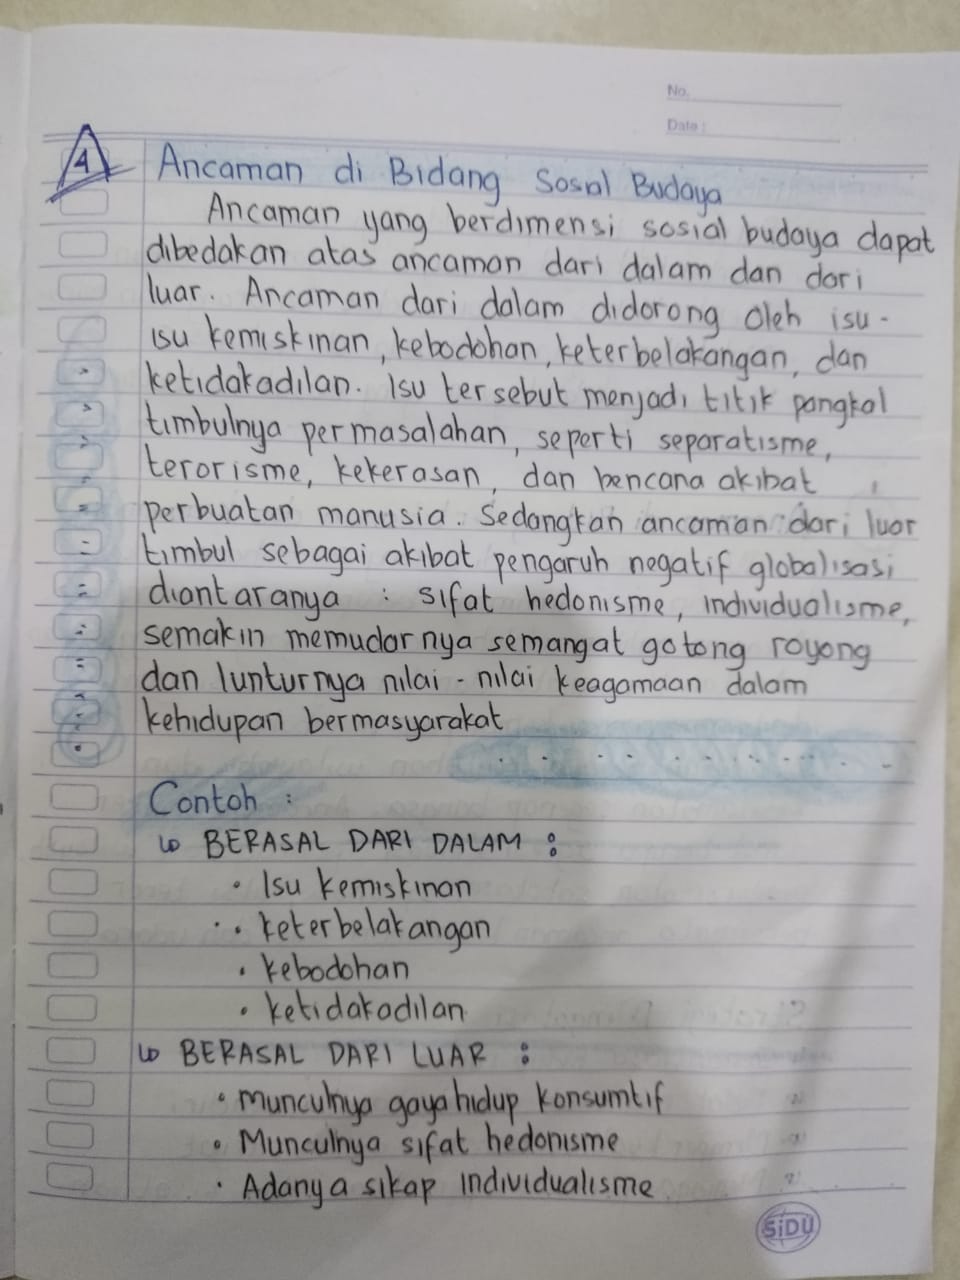 No.
Date :
4 Ancaman di Bidang Sosial Budaya
Ancaman yang berdimensi sosial budaya dapat
dibedakan atas ancaman dari dalam dan dari
luar. Ancaman dari dalam didorong oleh isu-
isu kemiskinan, kebodohan, keterbelakangan, dan
ketidakadilan. Isu tersebut menjadi titik pangkal
timbulnya permasalahan, seperti separatisme,
terorisme, kekerasan, dan bencana akibat
perbuatan manusia. Sedangkan ancaman dari luar
timbul sebagai akibat pengaruh negatif globalisasi
diantaranya : sifat hedonisme, individualisme,
semakin memudarnya semangat gotong royong
dan lunturnya nilai - nilai keagamaan dalam
kehidupan bermasyarakat
Contoh :
↳ BERASAL DARI DALAM :
• Isu kemiskinan
• keterbelakangan
• kebodohan
• ketidakadilan
↳ BERASAL DARI LUAR :
• munculnya gaya hidup konsumtif
• Munculnya sifat hedonisme
• Adanya sikap individualisme
SiDU